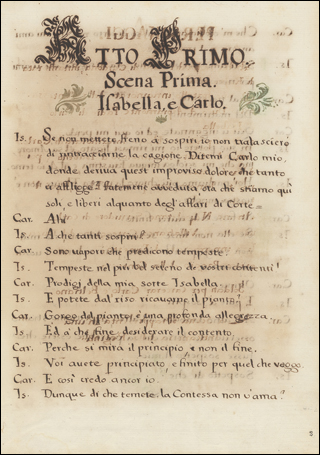 ATTO PRIMO.
Scena Prima.
Isabella, e Carlo.
Is. Se non mettete freno a' sospiri io non tralascierò
di rintracciarne la cagione. Ditemi Carlo mio,
donde deriva quest' improviso dolore, che tanto
v' affligge?
soli, e liberi alquanto degl' affari di Corte=
Car. Ah!
Is. A che tanti sospiri?
Car. Sono vapori che predicono tempeste.
Is. Tempeste nel più bel sereno de' vostri contenti!
Car. Prodigi della mia sorte Isabella.
Is. E potete dal riso ricavarne il pianto?
Car. Gorgo del pianto, è una profonda allegrezza.
Is. Ed a che fine desiderare il contento.
Car. Perche si mira il principio, e non il fine.
Is. Voi avete principiato, e finito per quel che veggo.
Car. E così credo ancor io.
Is. Dunque di che temete, la Contessa non v'ama?